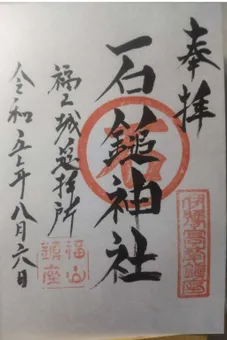 奉拝
石鎚神社
福山城遥拝所
令和五年八月六日
福山
鎮座